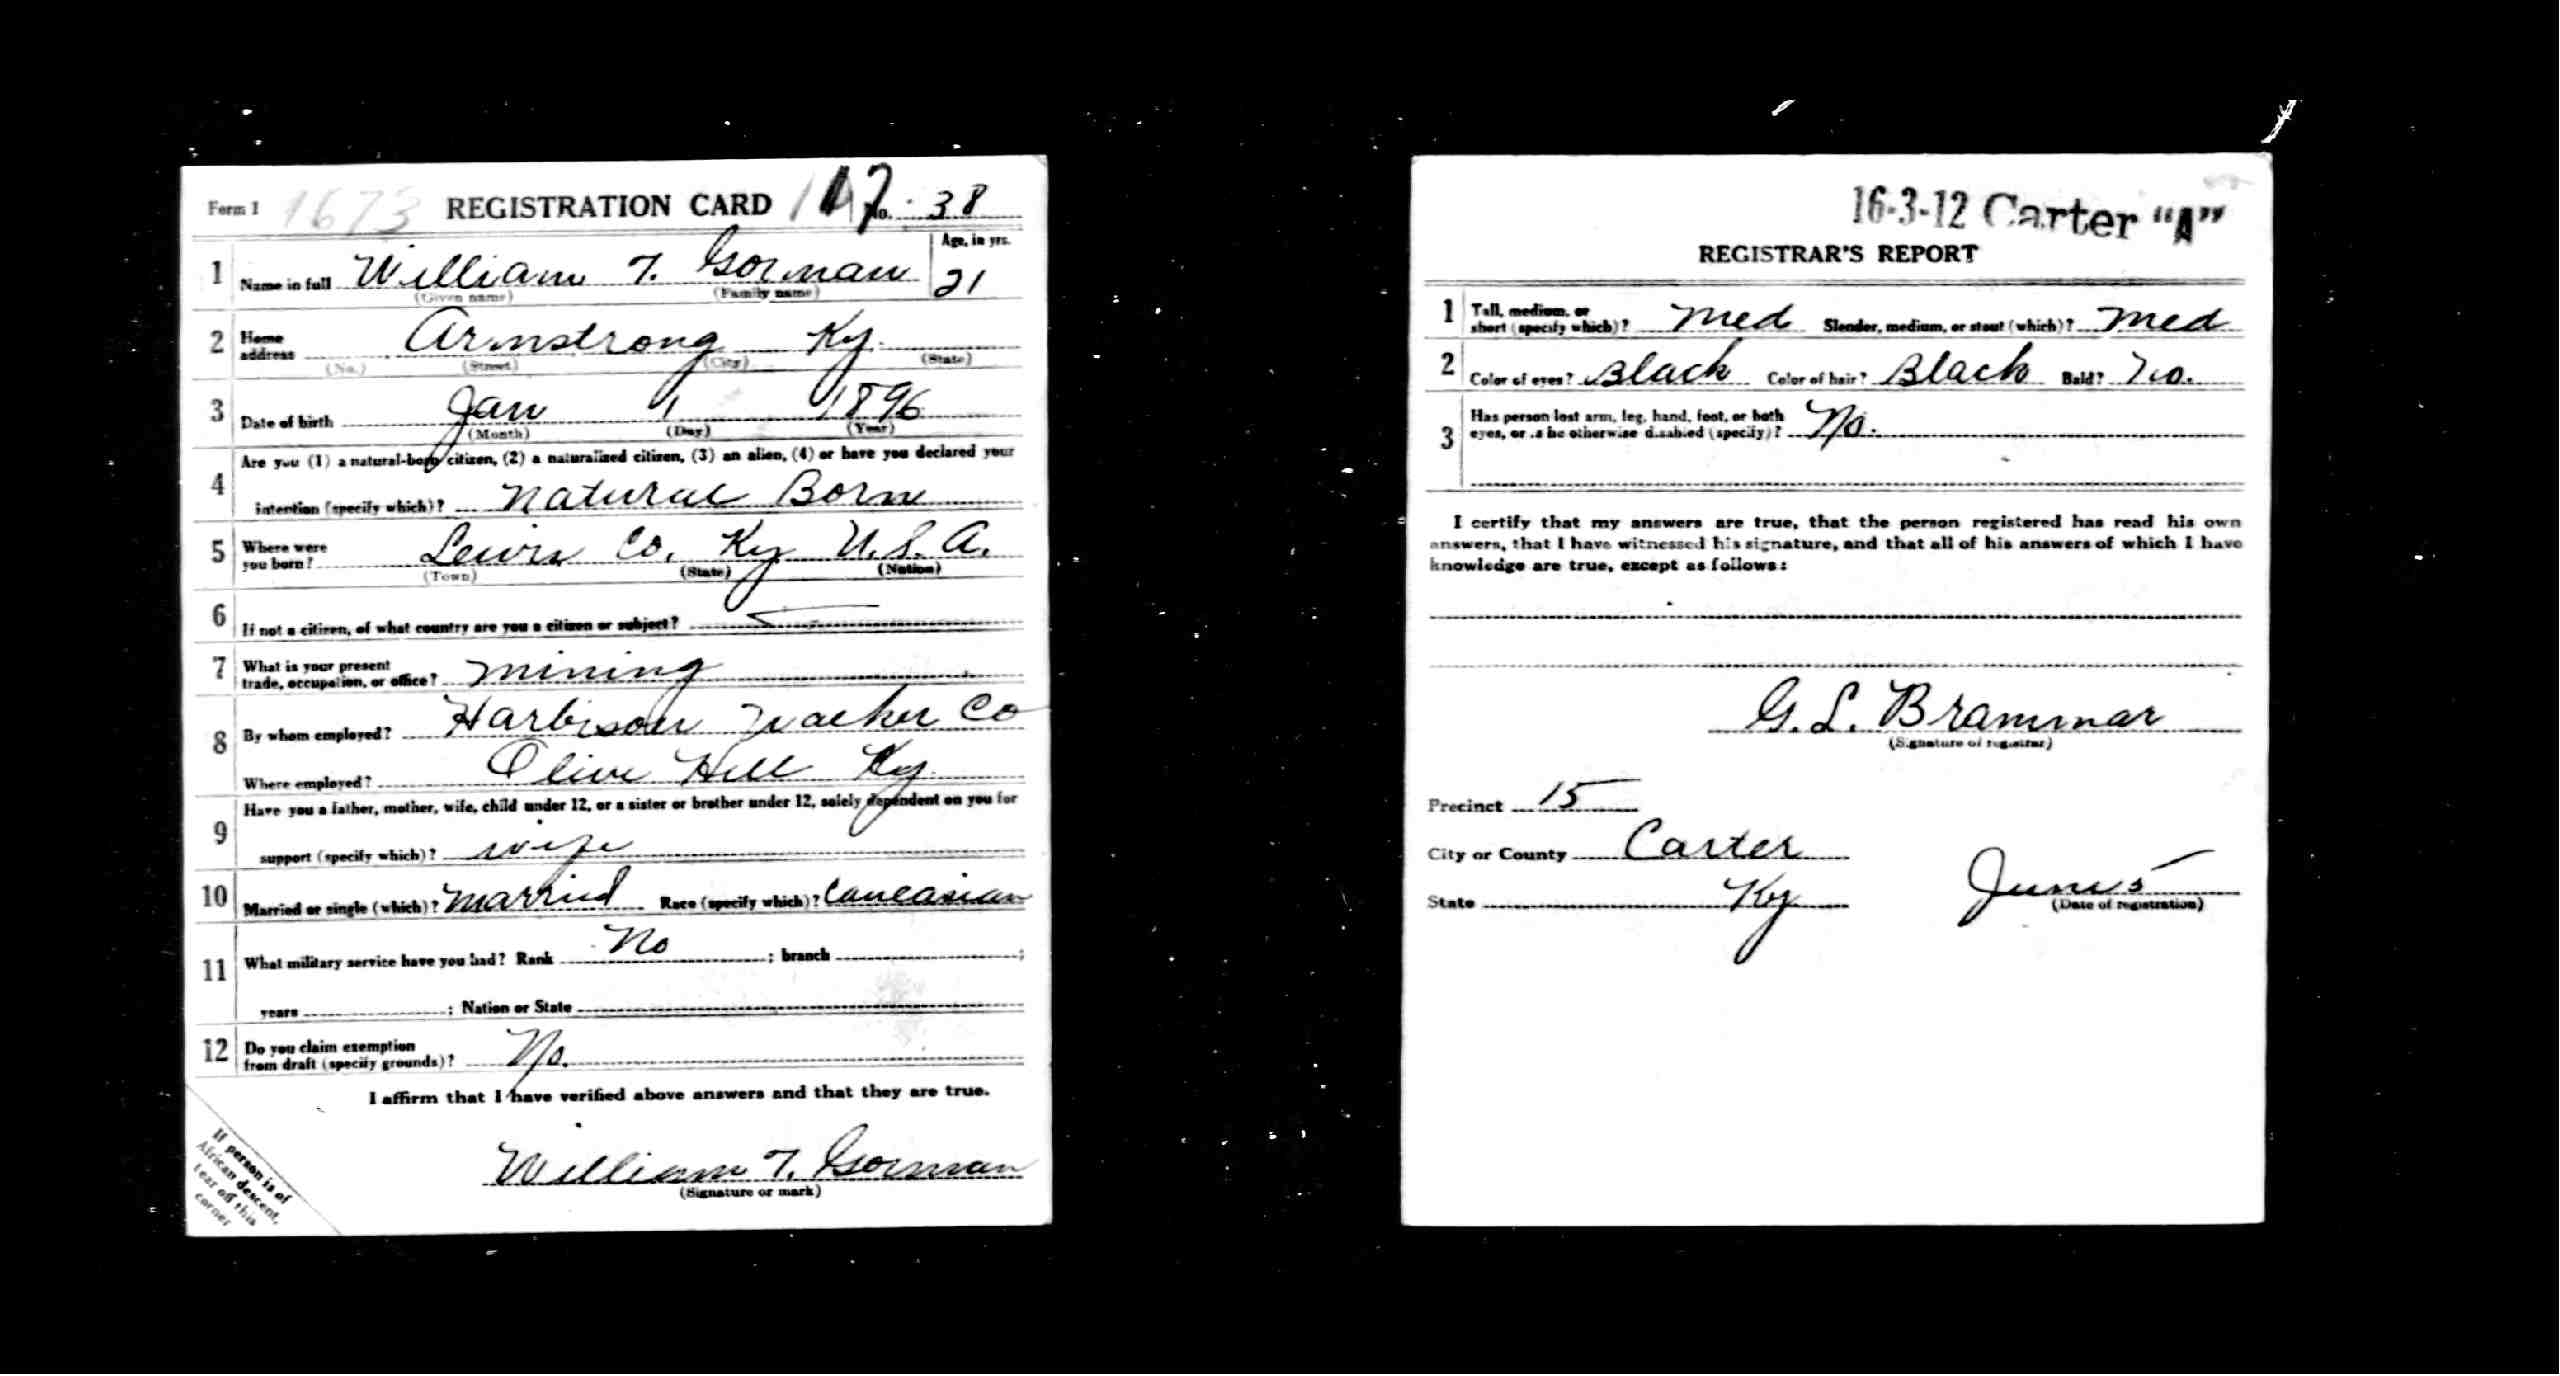 Form 1 1673 REGISTRATION CARD No. 38
Age, in yrs.
1 Name in full William T. Gorman 21
(Given name) (Family name)
2 Home address Armstrong Ky.
(No.) (Street) (City) (State)
3 Date of birth Jan 1 1896
(Month) (Day) (Year)
Are you (1) a natural-born citizen, (2) a naturalized citizen, (3) an alien, (4) or have you declared your
4 intention (specify which)? Natural Born
5 Where were you born? Lewis Co. Ky U.S.A.
(Town) (State) (Nation)
6 If not a citizen, of what country are you a citizen or subject?
7 What is your present trade, occupation, or office? Mining
8 By whom employed? Harbison Walker Co
Where employed? Olive Hill Ky.
Have you a father, mother, wife, child under 12, or a sister or brother under 12, solely dependent on you for
9 support (specify which)? wife
10 Married or single (which)? Married Race (specify which)? Caucasian
11 What military service have you had? Rank No ; branch ;
years ; Nation or State
12 Do you claim exemption from draft (specify grounds)? No.
I affirm that I have verified above answers and that they are true.
William T. Gorman
(Signature or mark)
If person is of
African descent,
tear off this
corner
16-3-12 Carter "A"
REGISTRAR'S REPORT
1 Tall, medium, or short (specify which)? Med Slender, medium, or stout (which)? Med
2 Color of eyes? Black Color of hair? Black Bald? No.
3 Has person lost arm, leg, hand, foot, or both
eyes, or is he otherwise disabled (specify)? No.
I certify that my answers are true, that the person registered has read his own
answers, that I have witnessed his signature, and that all of his answers of which I have
knowledge are true, except as follows:
G. L. Brammar
(Signature of registrar)
Precinct 15
City or County Carter
State Ky
June 5
(Date of registration)